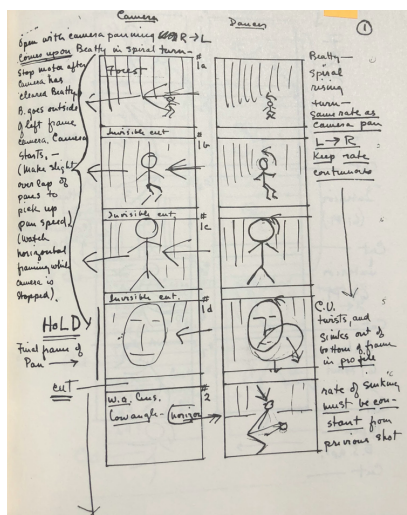 Camera
Dancer
①
Open with camera panning R → L
Comes upon Beatty in spiral turn—
Stop motor after
camera has
cleared Beatty
B. goes outside
of left frame
camera. Camera
starts, —
(Make slight
overlap of
pans to
pick up
pan speed)
(Watch
horizontal
framing while
camera is
stopped).
HOLD
Final frame of
Pan →
cut
Forest
# 1a
Invisible cut
# 1b
Invisible cut
# 1c
Invisible cut.
# 1d
# 2
W.A. Lens.
Low angle— (horizon
Beatty—
spiral
rising
turn—
same rate as
camera pan
L → R
Keep rate
continuous
C.U.
twists, and
sinks out of
bottom of frame
in profile
rate of sinking
must be con-
stant from
previous shot